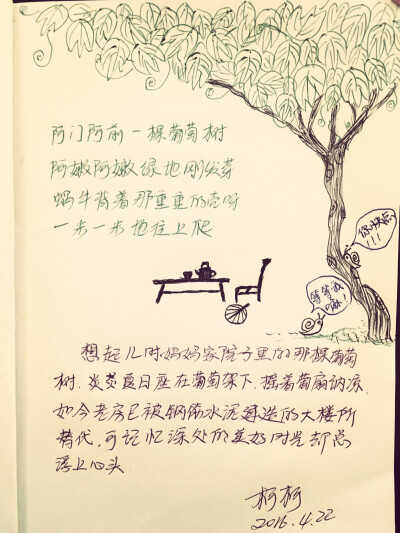 阿门阿前一棵葡萄树
阿嫩阿嫩绿地刚发芽
蜗牛背着那重重的壳呀
一步一步地往上爬
你快点!!!
等等我嘛!
想起儿时妈妈家院子里的那棵葡萄
树.炎炎夏日座在葡萄架下.摇着葡扇讷凉.
如今老房已被钢筋水泥建造的大楼所
替代.可记忆深处的美好时光却总
浮上心头.
柯柯
2016.4.22